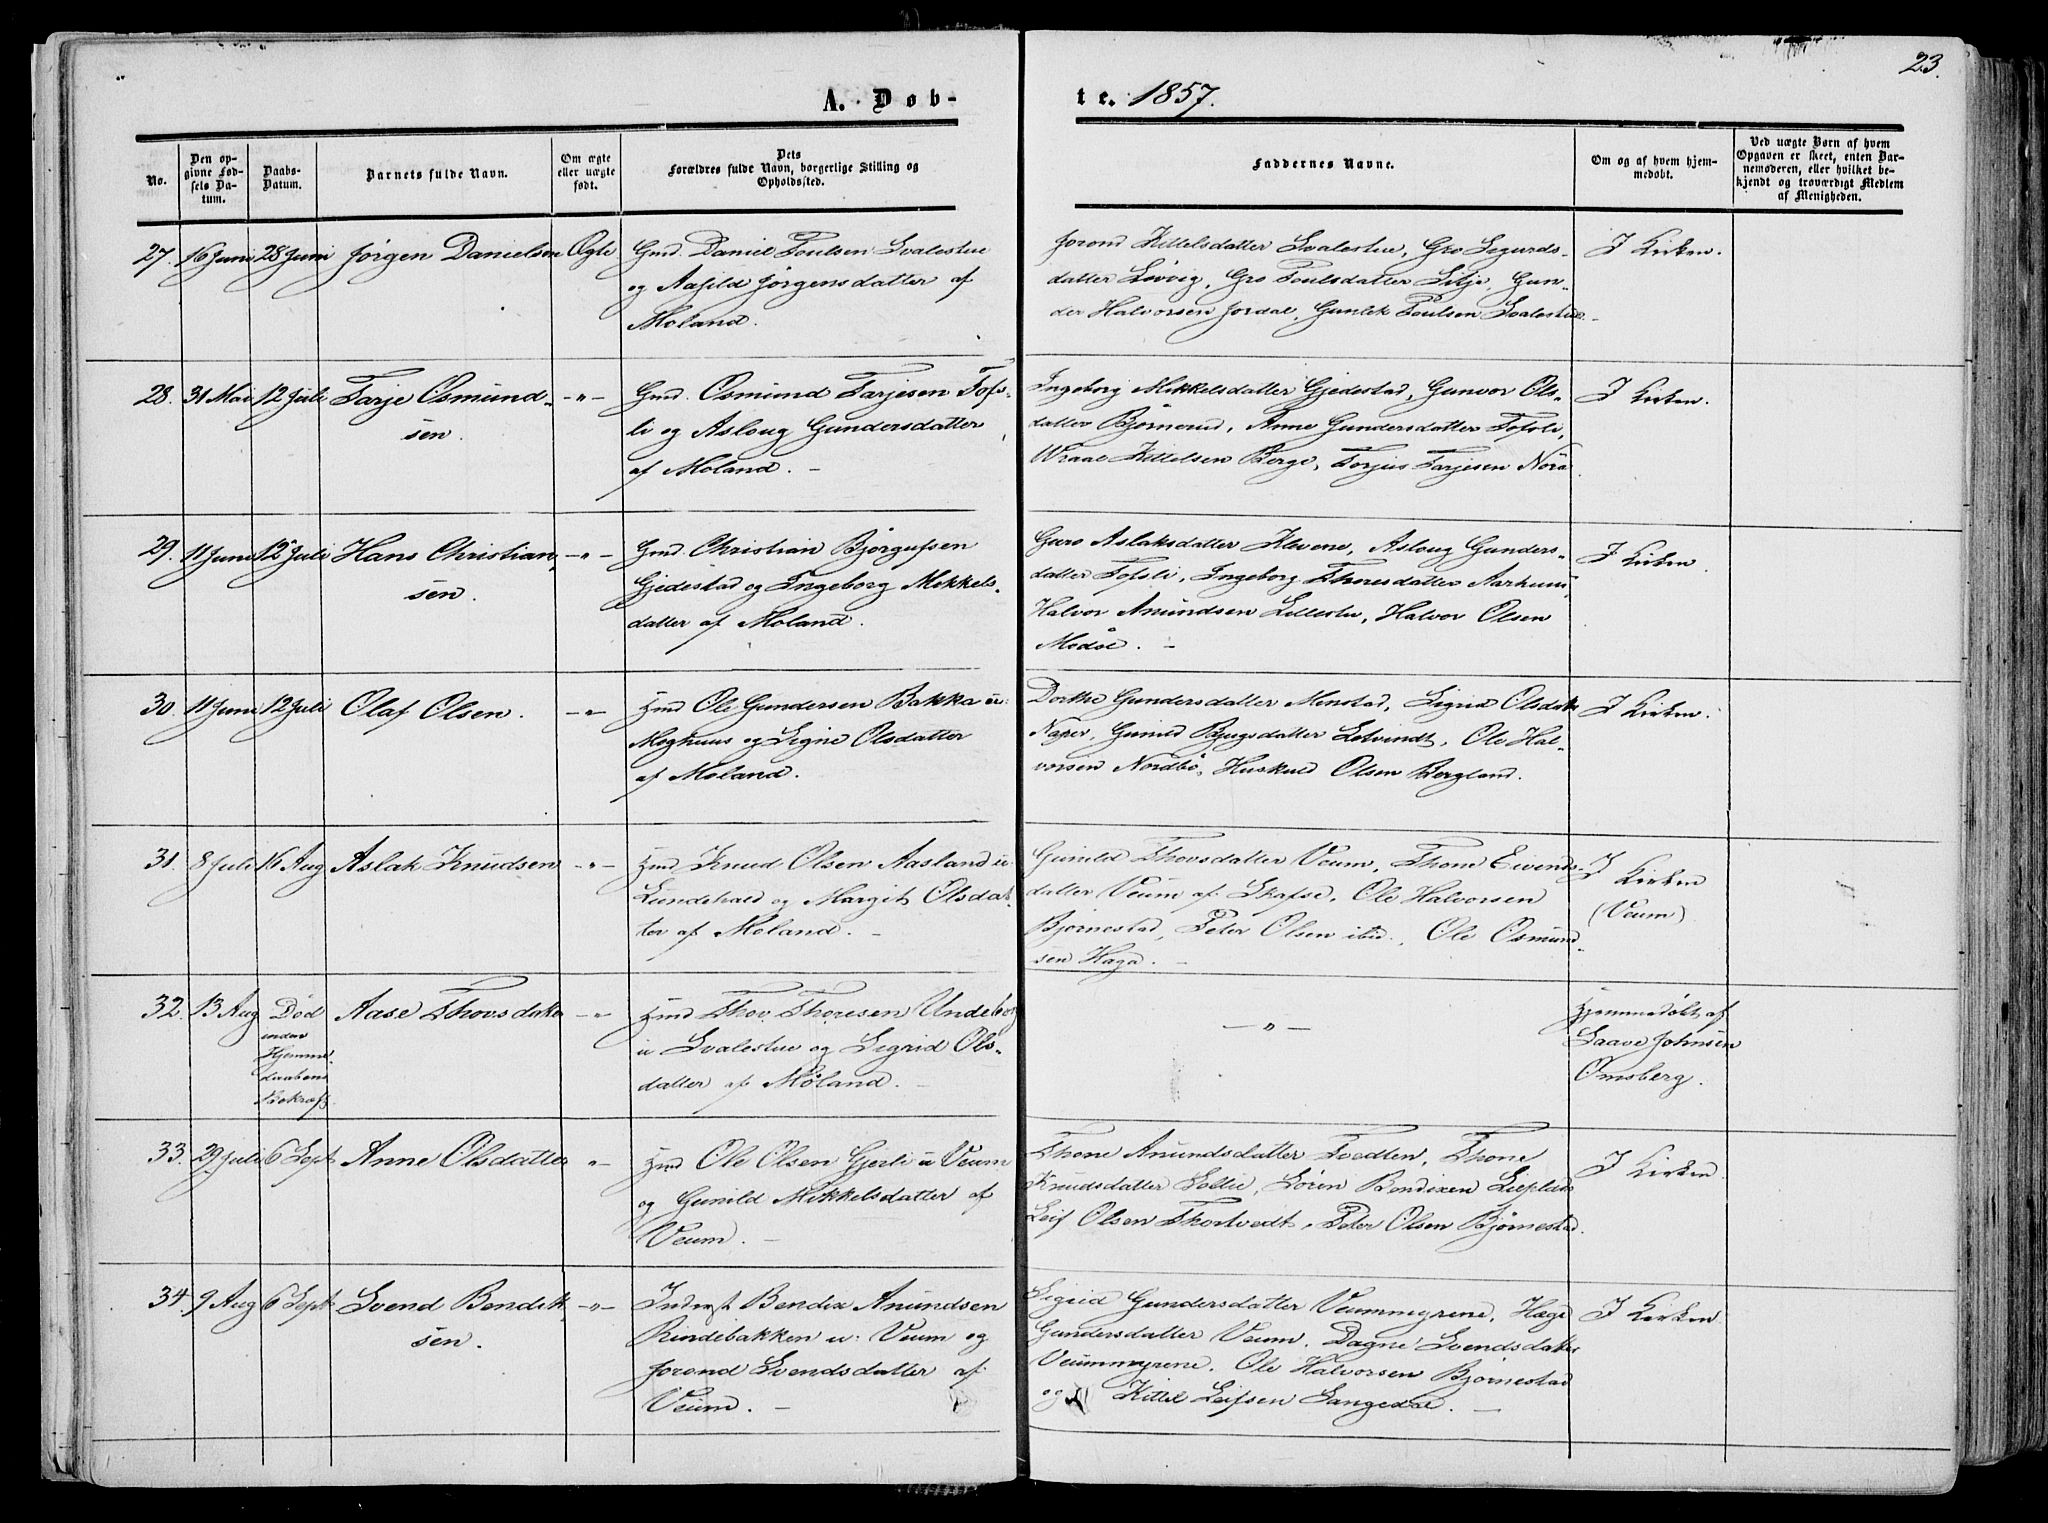 23.
A. Døb-
te. 1857.
No.
Den op-
givne Fød-
sels Da-
tum.
Daabs-
Datum.
Barnets fulde Navn.
Om ægte
eller uægte
født.
Dets
Forældres fulde Navn, borgerlige Stilling og
Opholdssted.
Faddernes Navne.
Om og af hvem hjem-
medøbt.
Ved uægte Børn af hvem
Opgaven er skeet, enten Bar-
nemoderen, eller hvilket be-
kjendt og troværdigt Medlem
af Menigheden.
27. 16 Juni 28 Juni Jørgen Danielsen Ægte
Gmd. Daniel Poulsen Svalestue
og Aasild Jørgensdatter af
Moland.
Jorond Kittelsdatter Svalestue, Gro Sigurds-
datter Løvvig, Gro Poulsdatter Litje, Gun-
der Halvorsen Jordal, Gunlek Poulsen Svalestue.
I Kirken.
28. 31 Mai 12 Juli Tarje Osmund-
sen. -"-
Gmd. Osmund Tarjesen Tofs-
li og Asloug Gundersdatter
af Moland. -
Ingeborg Mikkelsdatter Gjedestad, Gunvor Ols-
datter Bjørnerud, Anne Gundersdatter Tofsli,
Wraal Kittelsen Berge, Torjus Tarjesen Nora
I Kirken.
29. 11 Juni 12 Juli Hans Christian-
sen. -"-
Gmd. Christian Bjørgufsen
Gjedestad og Ingeborg Mikkels-
datter af Moland.
Guro Aslaksdatter Klevene, Asloug Gunders-
datter Tofsli, Ingeborg Thoresdatter Aarhuus,
Halvor Anundsen Lillestu, Halvor Olsen
Modøl. -
I Kirken.
30. 11 Juni 12 Juli Olaf Olsen. -"-
Hmd Ole Gundersen Bakka u:
Moghuus og Signe Olsdatter
af Moland.
Dorthe Gundersdatter Menstad, Sigrid Olsdatter
Naper, Gunild Bjugsdatter Letvindt, Ole Hal-
vorsen Nordbø, Huskuld Olsen Bergland.
I Kirken.
31. 8 Juli 16 Aug Aslak Knudsen -"-
Hmd Knud Olsen Aasland u
Lundevald og Margit Olsdat-
ter af Moland. -
Gunild Thovsdatter Veum, Thone Eivends-
datter Veum af Skafse, Ole Halvorsen
Bjørnestad, Peter Olsen ibid., Ole Osmund-
sen Haga. -
I
Kirken
(Veum)
32. 13 Aug Død
inden
Hjemme-
daabens
Bekræft.
Aase Thovsdatter -"-
Hmd Thov Thoresen Undebog
u Svalestue og Sigrid Ols-
datter af Moland.
-"-
Hjemmedøbt af
Saave Johnsen
Omsberg.
33. 29 Juli 6 Sept Anne Olsdatter "
Hmd Ole Olsen Gjerli u Veum
og Gunild Mikkelsdatter af
Veum. -
Thone Anundsdatter Tvedten, Thone
Knudsdatter Soltu, Søren Bendixen Lieplads
Leif Olsen Thortvedt, Peter Olsen Bjørnestad
I Kirken.
34. 9 Aug 6 Sept Svend Bendik-
sen. -"-
Inderst Bendix Anundsen
Rindebakken u: Veum og
Jorond Svendsdatter af
Veum. -
Sigrid Gundersdatter Veummyrene, Hæge
Gundersdatter Veum, Dagne Svendsdatter
Veummyrene, Ole Halvorsen Bjørnestad
og Kittil Leifsen Langedal. -
I Kirken